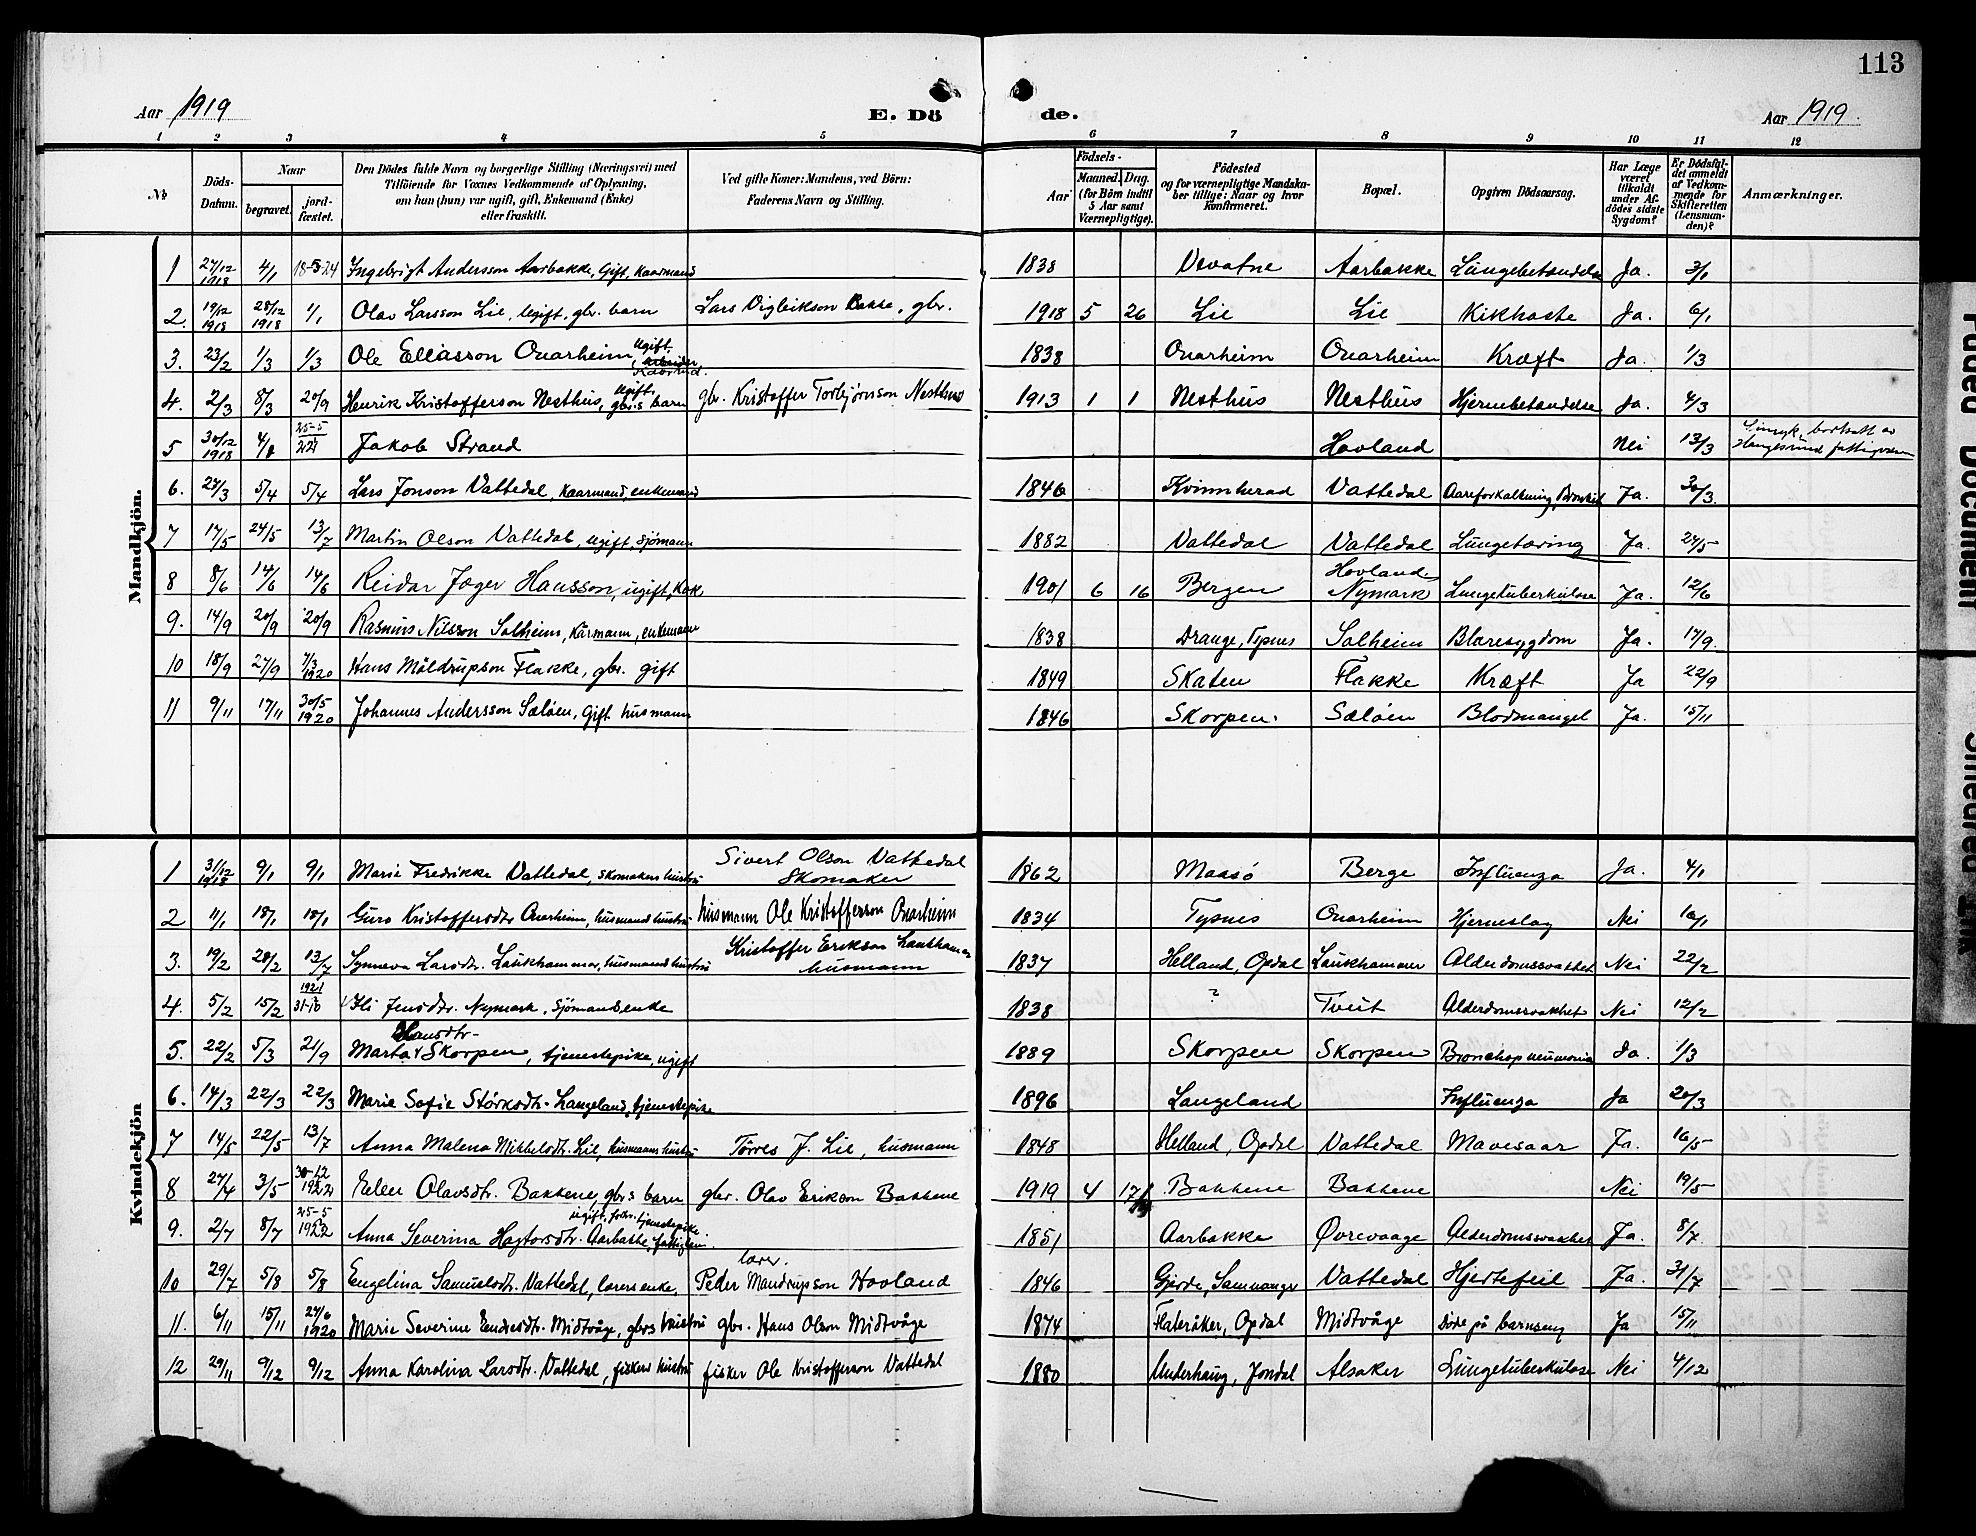 113
Aar 1919
E. Dö
de.
Aar 1919
1 2 3 4 5 6 7 8 9 10 11 12
No
Döds-Datum.
Naar
begravet.
jord-fæstet.
Den Dödes fulde Navn og borgerlige Stilling (Næringsvei) med
Tilföiende for Voxnes Vedkommende af Oplysning,
om han (hun) var ugift, gift, Enkemand (Enke)
eller fraskilt.
Ved gifte Koner: Mandens, ved Börn:
Faderens Navn og Stilling.
Födsels-
Aar
Maaned. Dag.
(for Börn indtil
5 Aar samt
Værnepligtige).
Födested
og for værnepligtige Mandska-
ber tillige: Naar og hvor
konfirmeret.
Bopæl.
Opgiven Dödsaarsag.
Har Læge
været
tilkaldt
under Af-
dödes sidste
Sygdom?
Er Dödsfal-
det anmeldt
af Vedkom-
mende for
Skifteretten
(Lensman-
den)?
Anmærkninger.
Mandkjön.
1 27/12 1918 4/1 18-5-24 Ingebrigt Andersson Aarbakke, Gift, Kaarmand 1838 Aarbakke Lungebetændelse Ja. 3/1
2. 19/12 1918 28/12 1918 1/1 Olav Larsson Lie, ugift, gbr. barn Lars Vigleikson Bakke, gbr. 1918 5 26 Lie Lie Kikhoste Ja. 6/1
3. 23/2 1/3 1/3 Ole Eliasson Onarheim, ugift 1838 Onarheim Onarheim Kræft Ja. 1/3
4. 2/3 8/3 20/9 Henrik Kristofferson Nesthus, ugift, gbr.s barn gbr. Kristoffer Torbjørnson Nesthus 1913 1 1 Nesthus Nesthus Hjernebetændelse Ja. 4/3
5 30/12 1918 25-5 Jakob Strand Hovland Nei 13/3 Sinsyk, bortsatt av
fattigvesen
6. 27/3 5/4 5/4 Lars Jonson Vattedal, Kaarmand, enkemand 1846 Kvinnherad Vattedal Aareforkalkning, Bronkit Ja. 30/3
7 17/5 24/5 13/7 Martin Olson Vattedal, ugift, sjømann 1882 Vattedal Vattedal Lungetæring Ja. 27/5
8 8/6 14/6 14/6 Reidar Jæger Hansson, ugift, Kok 1901 6 16 Bergen Hovland Nymark Lungetuberkulose Ja. 12/6
9. 14/9 20/9 20/9 Rasmus Nilsson Solheim, Kårmann, enkemann 1838 Drange, Tysnes Solheim Blæresygdom Ja. 17/9.
10 18/9 27/9 7/3 1920 Hans Måldrupson Flakke, gbr. gift 1849 Skaten Flakke Kræft Ja 22/9
11 9/11 17/11 30/5 1920 Johannes Andersson Sæløen, Gift husmann 1846 Skorpen. Sæløen Blodmangel Ja. 15/11
Kvindekjön
1 31/12 1918 9/1 9/1 Marie Fredrikke Vattedal, skomakers hustru Sivert Olson Vattedal
Skomaker 1862 Maasø Berge Influenza Ja. 4/1
2 11/1 18/1 18/1 Guro Kristoffersdtr Onarheim, husmands hustru husmann Ole Kristofferson Onarheim 1834 Tysnes Onarheim Hjerneslag Nei 16/1
3. 19/2 28/2 13/7 Synneva Larsdtr. Laukhammar, husmands hustru Kristoffer Erikson Laukhamar
husmann 1837 Helland, Opdal Laukhammer Alderdomssvakhet Nei 22/2
4. 5/2 15/2 1921 31-10 Jensdtr. Nymark, Sjømandsenke 1838 ? Tveit Alderdomssvakhet Nei 12/2
5. 22/2 5/3 21/9 Marta Hansdtr- Skorpen, tjenestepike, ugift 1889 Skorpen Skorpen Bronchopneumonia Ja. 1/3
6. 14/3 22/3 22/3 Marie Sofie Størksdtr. Langeland, tjenestepike 1896 Langeland Influenza Ja 20/3
7 14/5 22/5 13/7 Anna Malena Mikkelsdtr. Lie, husmanns hustru Tørres J. Lie, husmann 1848 Helland, Opdal Vattedal Mavesaar Ja. 16/5
8 27/4 3/5 30-12 1922 Olavsdtr. Bakkene, gbr.s barn gbr. Olav Erikson Bakkene 1919 4 17 Bakkene Bakkene Nei 19/5
9. 2/7 8/7 25-5 1922 Anna Severina Hagtorsdtr. Aarbakke, ugift, forhv. tjenestepike 1851 Aarbakke Øvrevaage Alderdomssvakhet Ja. 8/7
10 29/7 5/8 5/8 Engelina Samuelsdtr. Vattedal, lærers enke. lærer. Peder Mandrupson Hovland 1846 Gjerde, Samnanger Vattedal Hjertefeil Ja. 31/7
11. 6/11 15/11 27/6 1920 Marie Severine Endresdtr. Midtvåge, gbrs hustru gbr. Hans Olson Midtvåge 1874 Flateråker, Opdal Midtvåge Døde på barnseng Ja 15/11
12 29/11 9/12 9/12 Anna Karolina Larsdtr. Vattedal, fiskers hustru fisker Ole Kristofferson Vattedal 1880 Underhaug, Jondal Alsaker Lungetuberkulose Nei 4/12